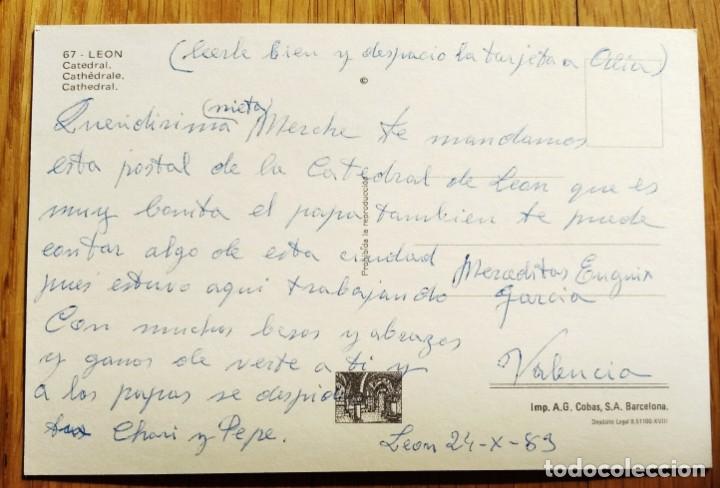 67 - LEON
Catedral.
Cathédrale.
Cathedral.
(leerle bien y despacio la tarjeta a
©
(nieta)
Queridisima Merche te mandamos
esta postal de la Catedral de Leon que es
muy bonita el papa tambien te puede
contar algo de esta ciudad
pues estuvo aqui trabajando
Con muchos besos y abrazos
y ganas de verte a ti y
a los papas se despide
Chari y Pepe.
Leon 24-X-83
Prohibida la reproducción
Merceditas Enguix
Garcia
Valencia
Imp. A.G. Cobas, S.A. Barcelona.
Depósito Legal B.51100-XVIII
todocoleccion